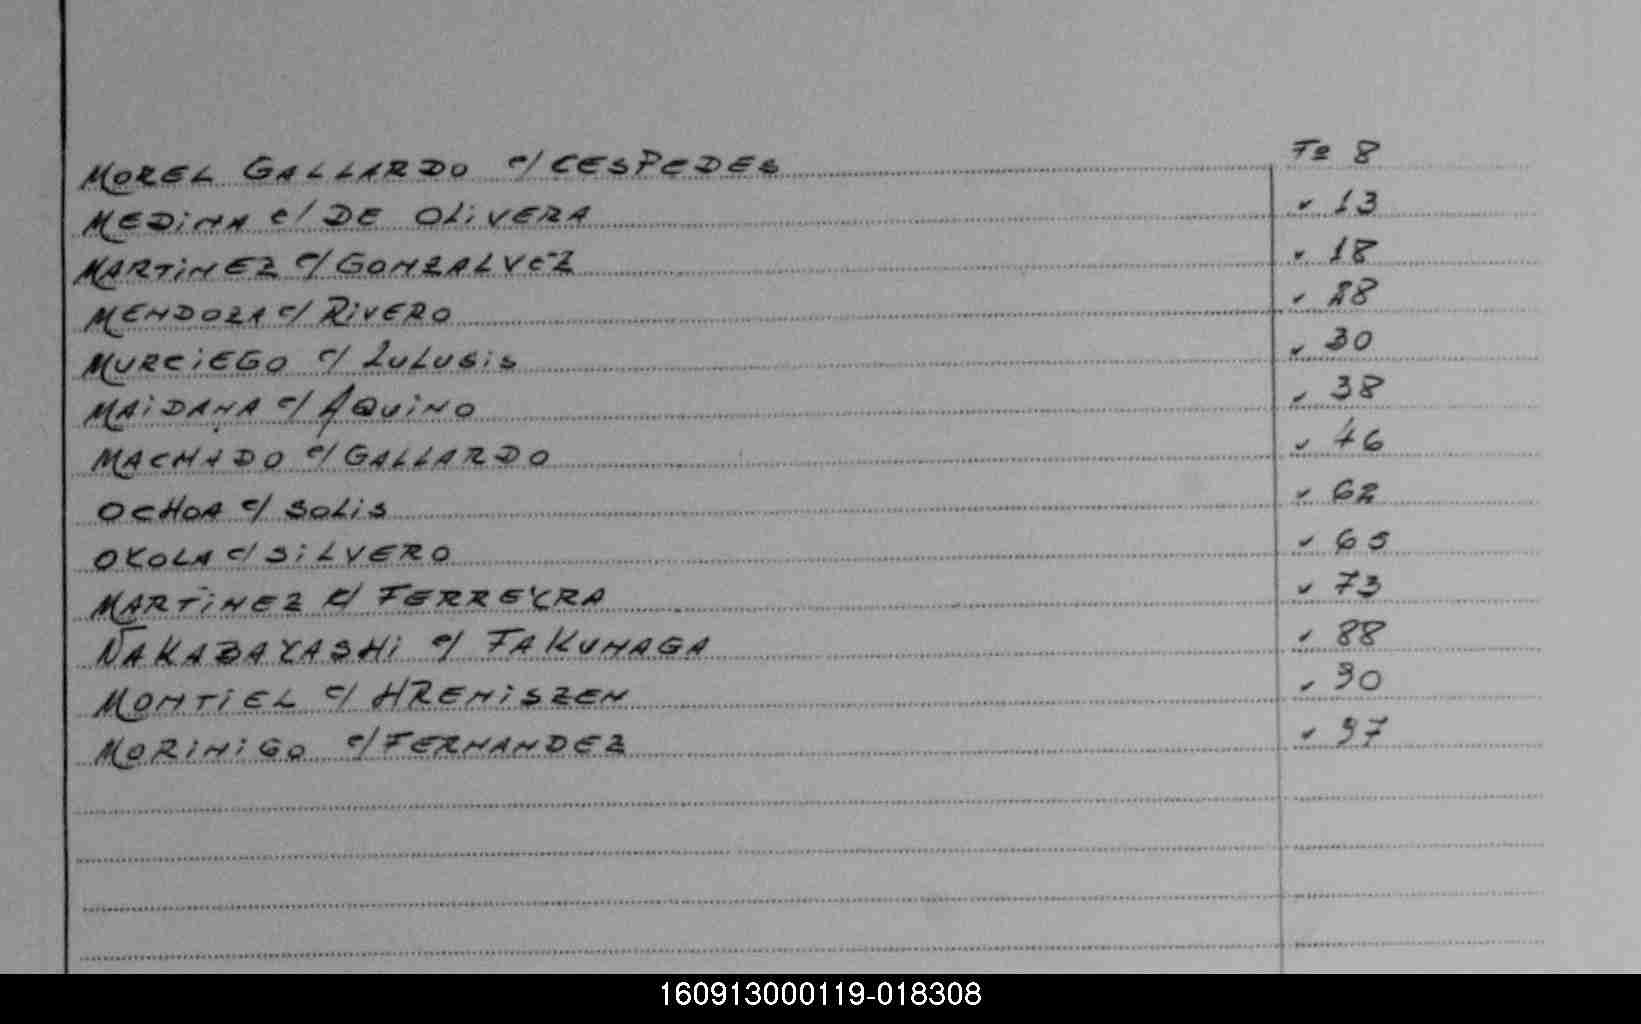 MOREL GALLARDO c/ CESPEDES Fº 8
MEDINA c/ DE OLIVERA " 13
MARTINEZ c/ GONZALVEZ " 18
MENDOZA c/ RIVERO " 28
MURCIEGO c/ LULUSIS " 30
MAIDANA c/ AQUINO " 38
MACHADO c/ GALLARDO " 46
OCHOA c/ SOLIS " 62
OYOLA c/ SILVERO " 65
MARTINEZ c/ FERREYRA " 73
NAKABAYASHI c/ TAKUNAGA " 88
MONTIEL c/ HRENISZEN " 90
MORINIGO c/ FERNANDEZ " 97
160913000119-018308